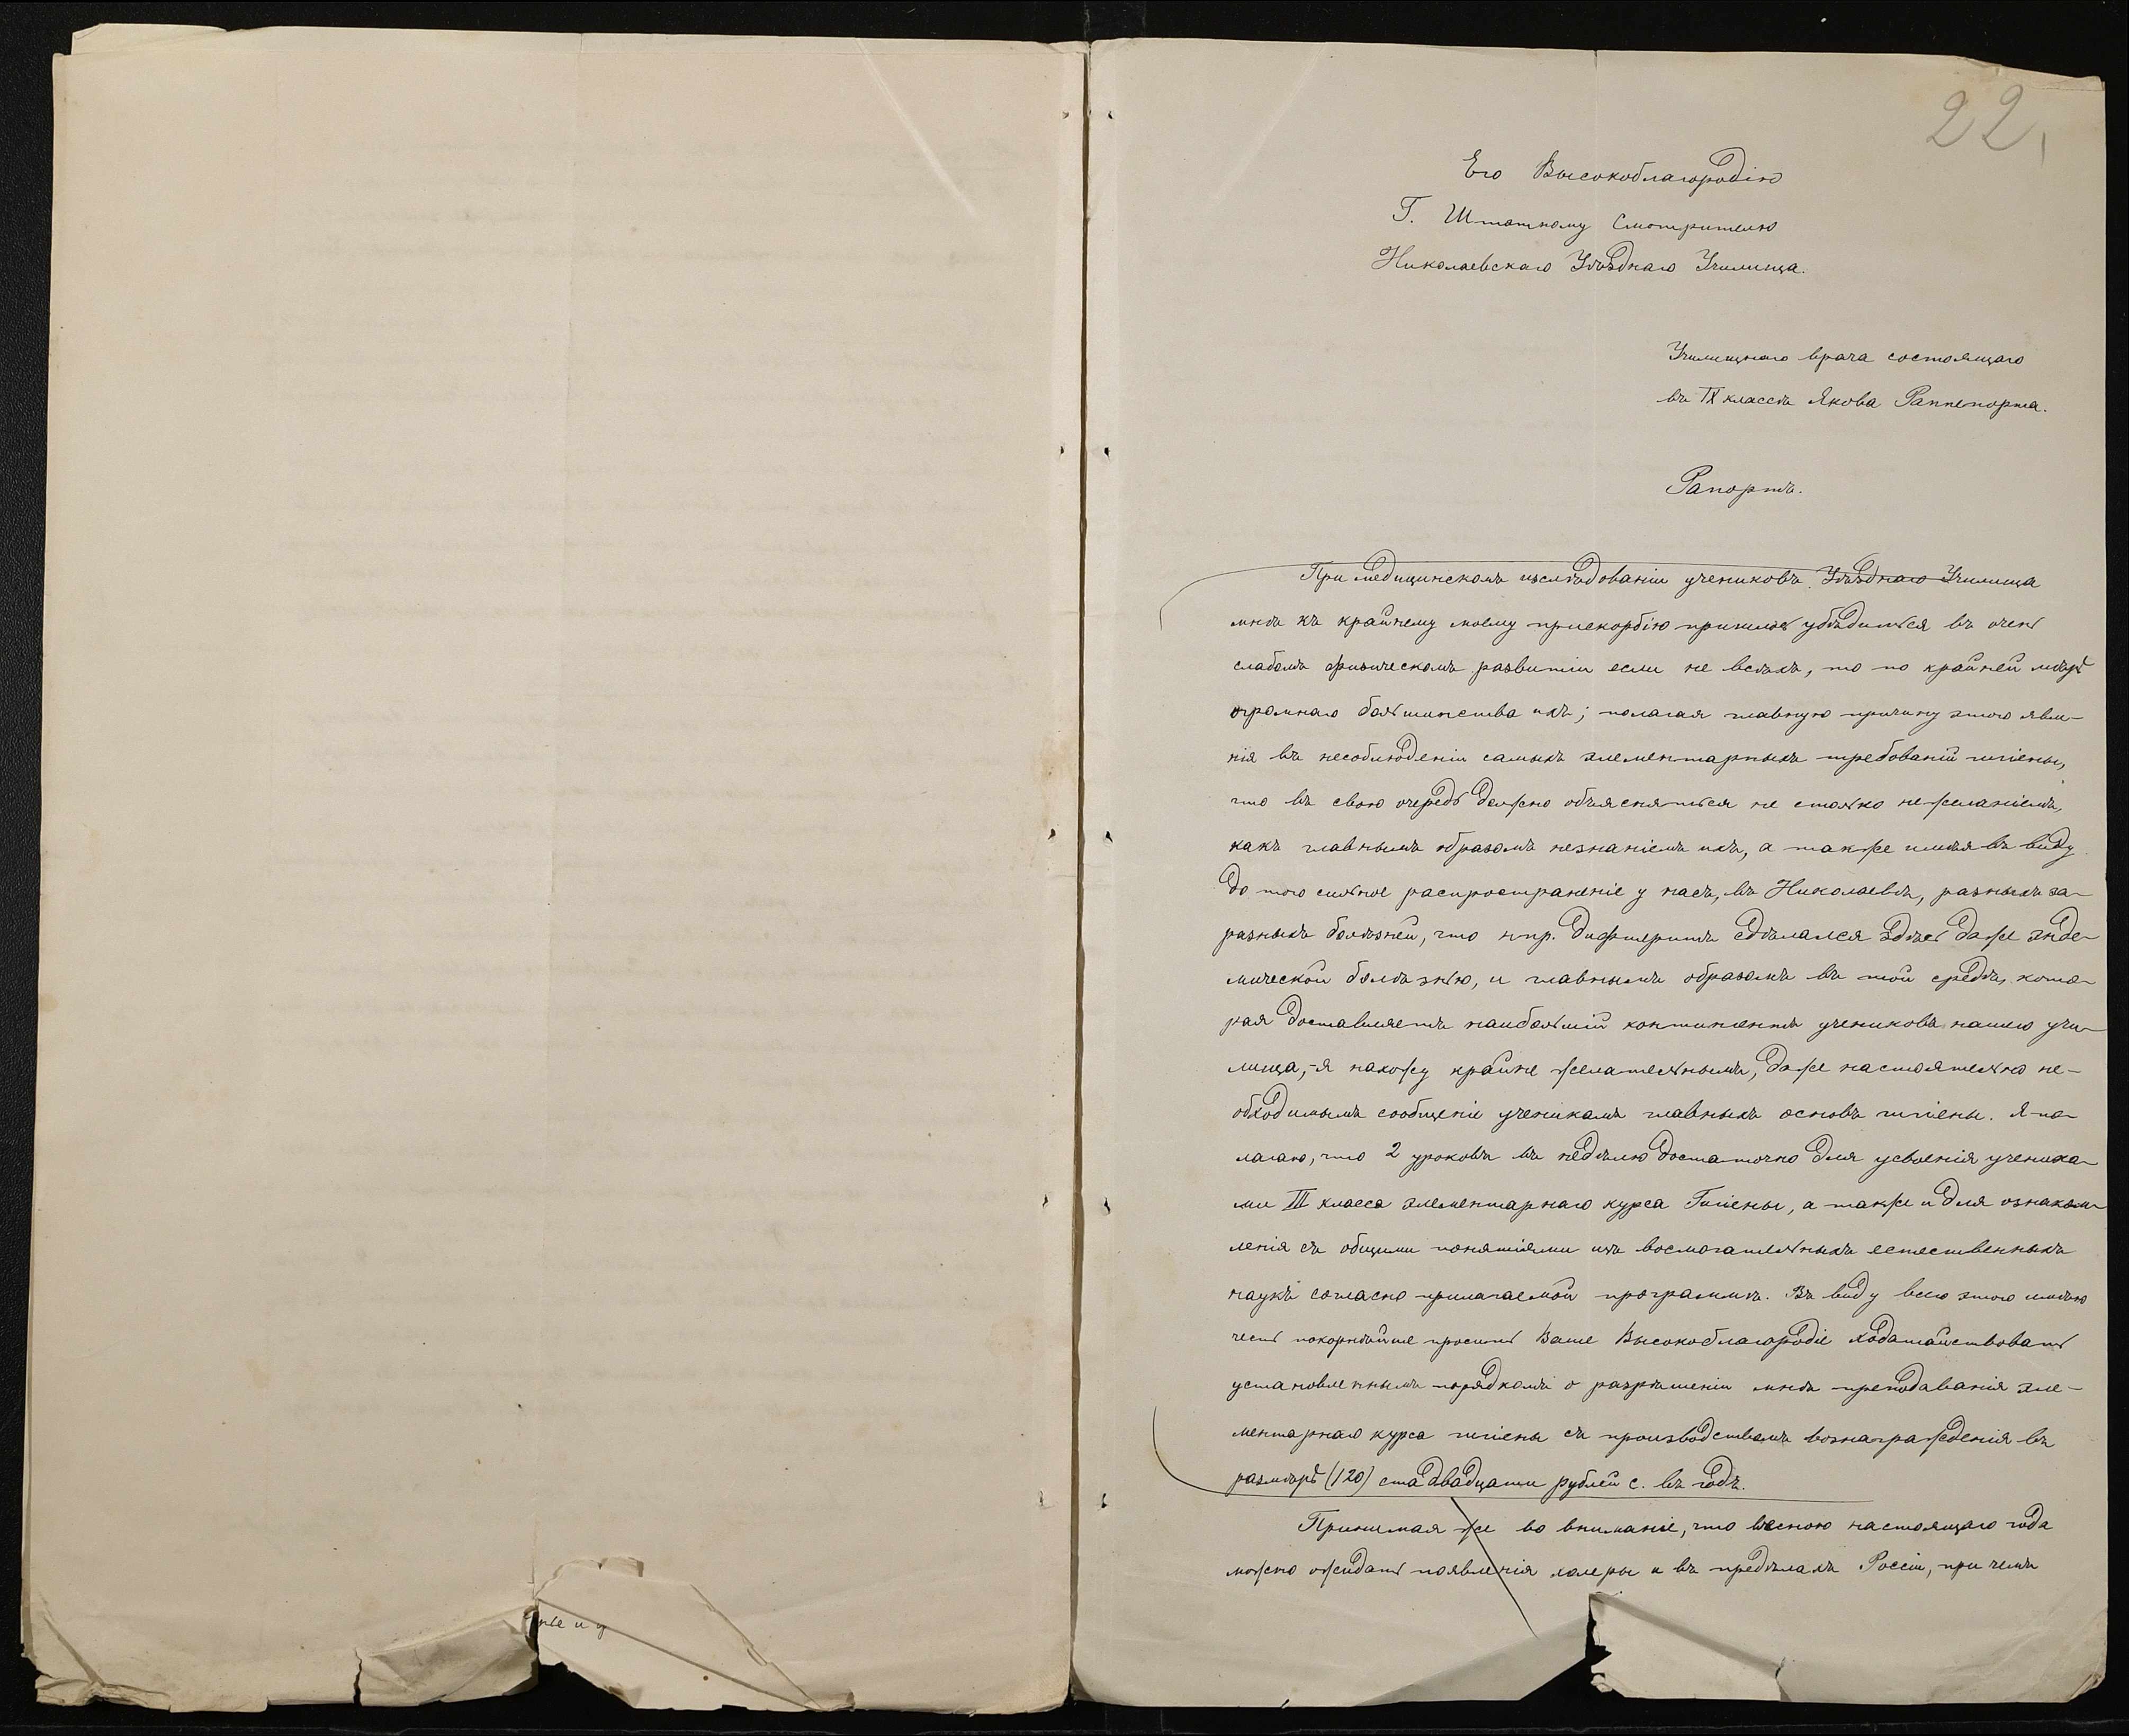 22
Его Высокоблагородію
Г. Штатному Смотрителю
Николаевскаго Уѣзднаго Училища.
Училищнаго врача состоящаго
въ IX классѣ Якова Раппепорта.
Рапортъ.
При медицинскомъ изслѣдованіи учениковъ Уѣзднаго Училища
мнѣ къ крайнему моему прискорбію пришлось убѣдиться въ очень
слабомъ физическомъ развитіи если не всѣхъ, то по крайней мѣрѣ
огромнаго большинства ихъ; полагая главную причину этого явле-
нія въ несоблюденіи самыхъ элементарныхъ требованій гигіены,
что въ свою очередь должно объясняться не столько нежеланіемъ,
какъ главнымъ образомъ незнаніемъ ихъ, а также имѣя въ виду
до того сильное распространеніе у насъ, въ Николаевѣ, разныхъ за-
разныхъ болѣзней, что нпр. дифтеритъ сдѣлался здѣсь даже энде-
мической болѣзнью, и главнымъ образомъ въ той средѣ, кото-
рая доставляетъ наибольшій контингентъ учениковъ нашего учи-
лища,-я нахожу крайне желательнымъ, даже настоятельно не-
обходимымъ сообщеніе ученикамъ главныхъ основъ гигіены. Я по-
лагаю, что 2 уроковъ въ недѣлю достаточно для усвоенія ученика-
ми III класса элементарнаго курса Гигіены, а также и для ознаком-
ленія съ общими понятіями изъ вспомогательныхъ естественныхъ
наукъ согласно прилагаемой программѣ. Въ виду всего этого имѣю
честь покорнѣйше просить Ваше Высокоблагородіе ходатайствовать
установленнымъ порядкомъ о разрѣшеніи мнѣ преподаванія эле-
ментарнаго курса гигіены съ производствомъ вознагражденія въ
размѣрѣ (120) ста двадцати рублей с. въ годъ.
Принимая же во вниманіе, что весною настоящаго года
можно ожидать появленія холеры и въ предѣлахъ Россіи, при чемъ